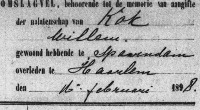 OMSLAGVEL, behoorende tot de memorie van aangifte
der nalatenschap van Kok
Willem.
gewoond hebbende te Spaarndam
overleden te Haarlem
Februari 1898.